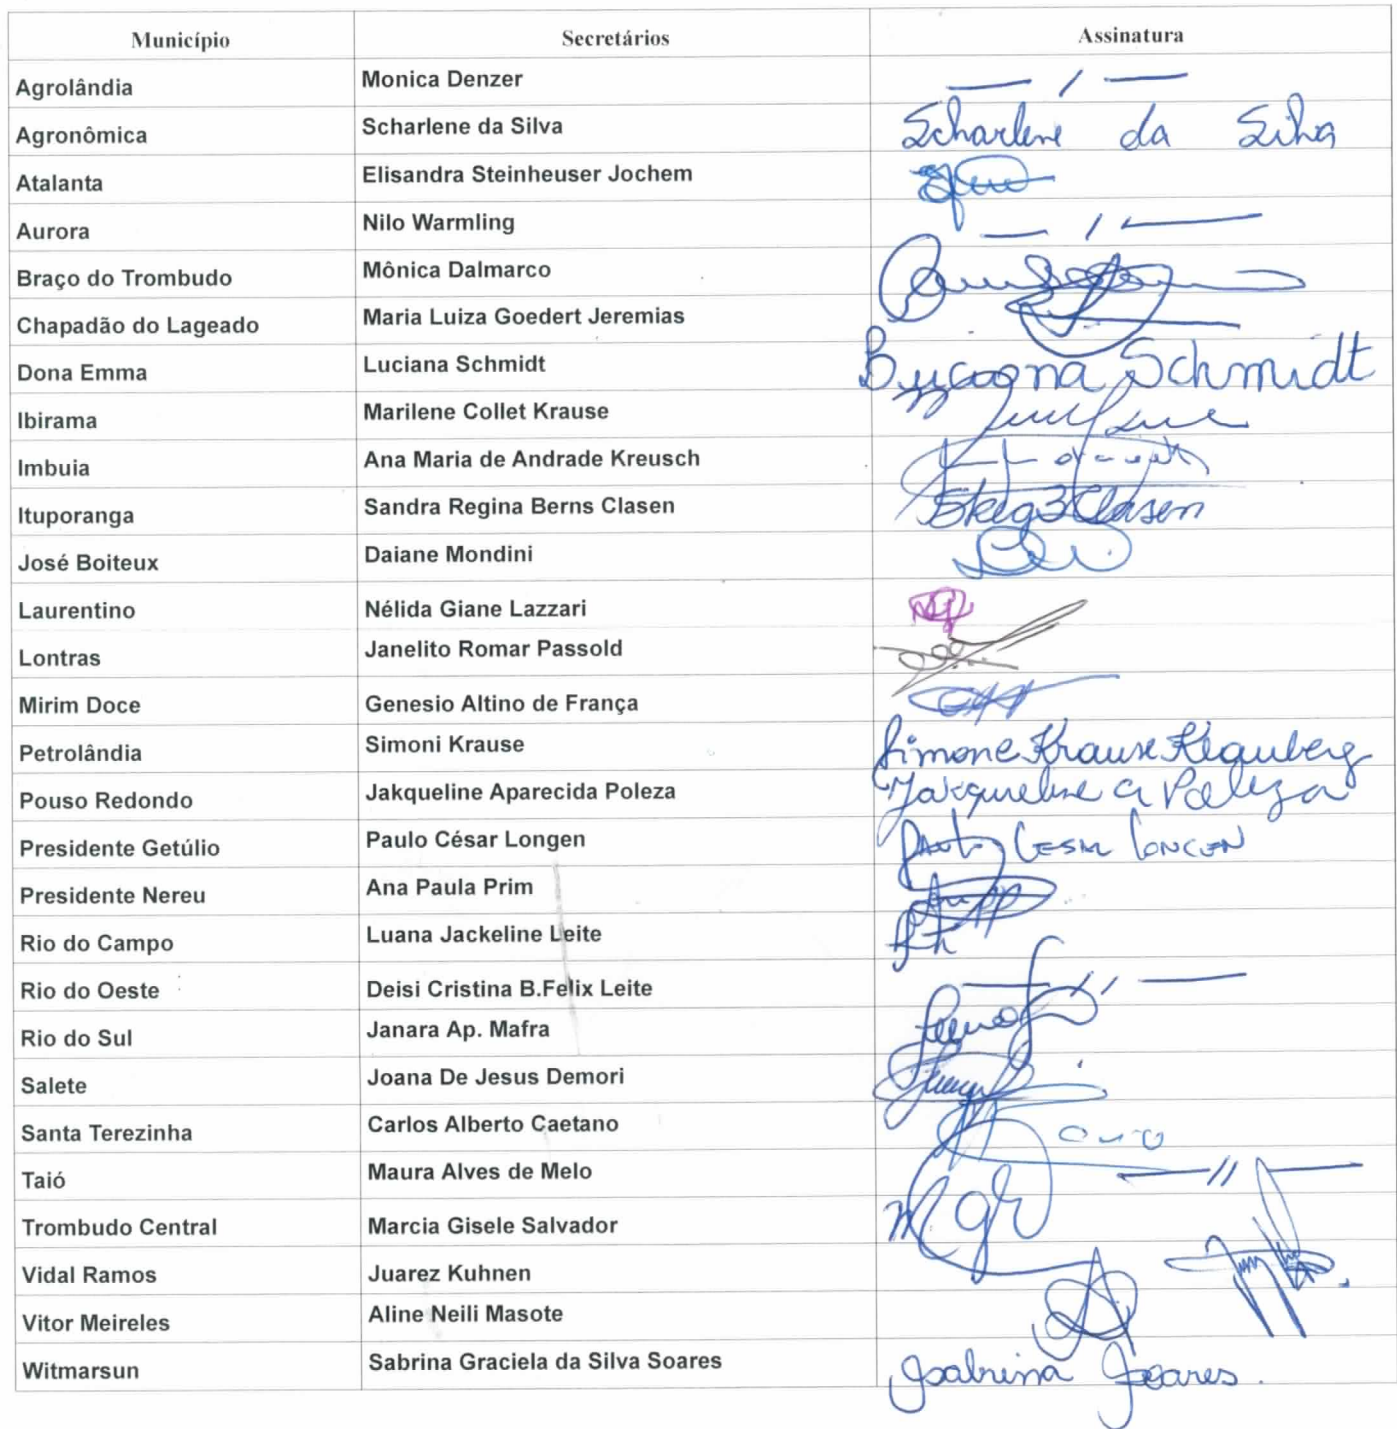 Município Secretários Assinatura
Agrolândia Monica Denzer — / —
Agronômica Scharlene da Silva Scharlene da Silva
Atalanta Elisandra Steinheuser Jochem
Aurora Nilo Warmling — / —
Braço do Trombudo Mônica Dalmarco
Chapadão do Lageado Maria Luiza Goedert Jeremias
Dona Emma Luciana Schmidt Schmidt
Ibirama Marilene Collet Krause
Imbuia Ana Maria de Andrade Kreusch
Ituporanga Sandra Regina Berns Clasen Clasen
José Boiteux Daiane Mondini
Laurentino Nélida Giane Lazzari
Lontras Janelito Romar Passold
Mirim Doce Genesio Altino de França
Petrolândia Simoni Krause Simone Krause Klauberg
Pouso Redondo Jakqueline Aparecida Poleza Jakqueline A Poleza
Presidente Getúlio Paulo César Longen Paulo Cesar Longen
Presidente Nereu Ana Paula Prim
Rio do Campo Luana Jackeline Leite
Rio do Oeste Deisi Cristina B.Felix Leite — // —
Rio do Sul Janara Ap. Mafra
Salete Joana De Jesus Demori
Santa Terezinha Carlos Alberto Caetano
Taió Maura Alves de Melo — // —
Trombudo Central Marcia Gisele Salvador
Vidal Ramos Juarez Kuhnen
Vitor Meireles Aline Neili Masote
Witmarsun Sabrina Graciela da Silva Soares Sabrina Soares.